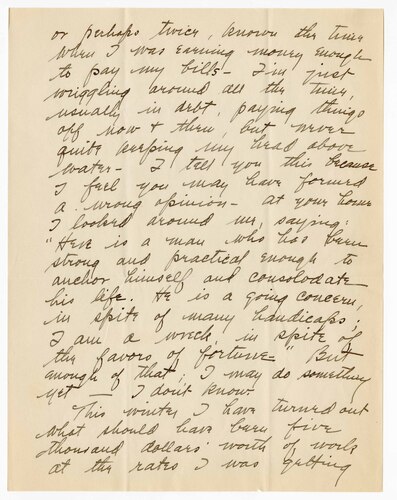 or perhaps twice, known the time
when I was earning money enough
to pay my bills - I'm just
wriggling around all the time,
usually in debt, paying things
off now + then, but never
quite keeping my head above
water - I tell you this because
I feel you may have formed
a wrong opinion - at your home
I looked around me, saying:
"Here is a man who has been
strong and practical enough to
anchor himself and consolodate
his life. He is a going concern,
in spite of many handicaps;
I am a wreck, in spite of
the favors of fortune." But
enough of that; I may do something
yet — I don't know.
This winter I have turned out
what should have been five
thousand dollars' worth of work
at the rates I was getting